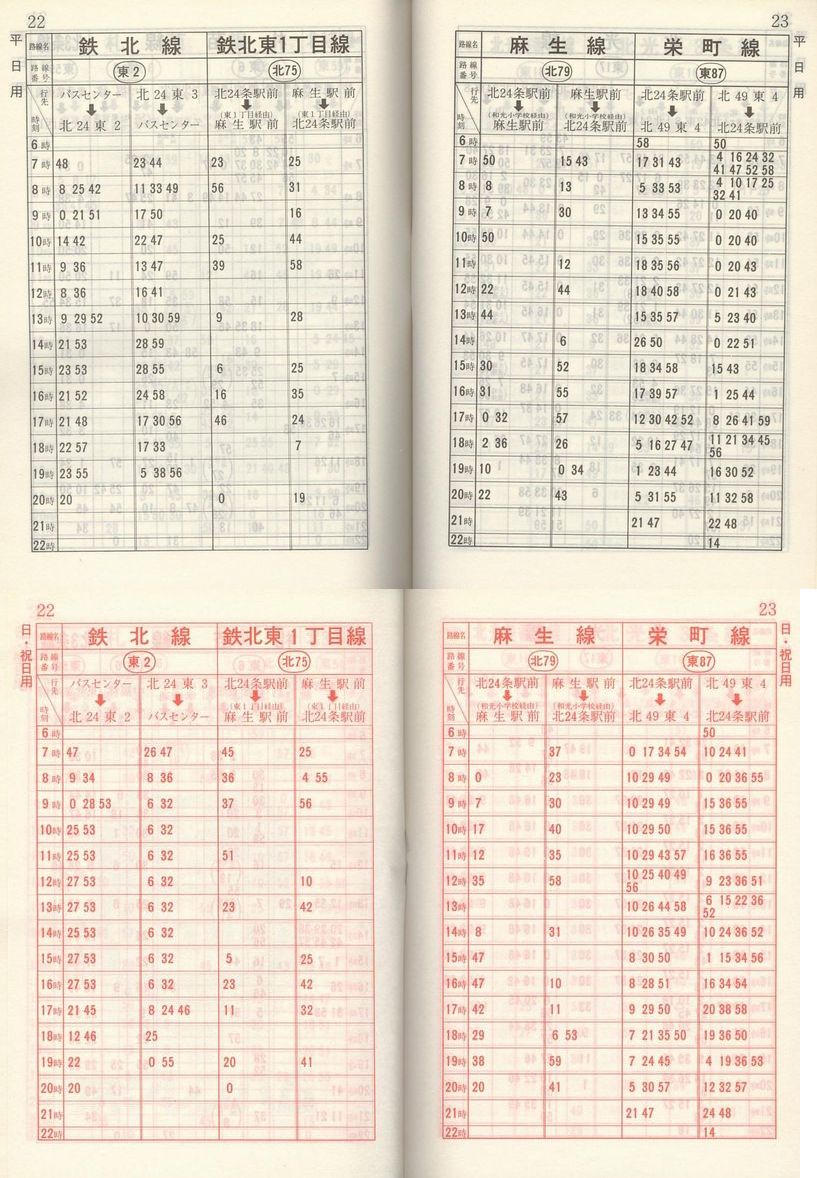 22
平日用
路線名 鉄北線 鉄北東1丁目線
路線番号 東2 北75
行先 時刻 バスセンター 北24東3 北24条駅前 麻生駅前
(東1丁目経由) (東1丁目経由)
北24東2 バスセンター 麻生駅前 北24条駅前
6時
7時 48 23 44 23 25
8時 8 25 42 11 33 49 56 31
9時 0 21 51 17 50 16
10時 14 42 22 47 25 44
11時 9 36 13 47 39 58
12時 8 36 16 41
13時 9 29 52 10 30 59 9 28
14時 21 53 28 59
15時 23 53 28 55 6 25
16時 21 52 24 58 16 35
17時 21 48 17 30 56 46 24
18時 22 57 17 33 7
19時 23 55 5 38 56
20時 20 0 19
21時
22時
23
平日用
路線名 麻生線 栄町線
路線番号 北79 東87
行先 時刻 北24条駅前 麻生駅前 北24条駅前 北49東4
(和光小学校経由) (和光小学校経由)
麻生駅前 北24条駅前 北49東4 北24条駅前
6時 58 50
7時 50 15 43 17 31 43 4 16 24 32
41 47 52 58
8時 8 13 5 33 53 4 10 17 25
32 41
9時 7 30 13 34 55 0 20 40
10時 50 15 35 55 0 20 40
11時 12 18 35 56 0 20 43
12時 22 44 18 40 58 0 21 43
13時 44 15 35 57 5 23 40
14時 6 26 50 0 22 51
15時 30 52 18 34 58 15 43
16時 31 55 17 39 57 1 25 44
17時 0 32 57 12 30 42 52 8 26 41 59
18時 2 36 26 5 16 27 47 11 21 34 45
56
19時 10 0 34 1 23 44 16 30 52
20時 22 43 5 31 55 11 32 58
21時 21 47 22 48
22時 14
22
日・祝日用
路線名 鉄北線 鉄北東1丁目線
路線番号 東2 北75
行先 時刻 バスセンター 北24東3 北24条駅前 麻生駅前
(東1丁目経由) (東1丁目経由)
北24東2 バスセンター 麻生駅前 北24条駅前
6時
7時 47 26 47 45 25
8時 9 34 8 36 36 4 55
9時 0 28 53 6 32 37 56
10時 25 53 6 32
11時 25 53 6 32 51
12時 27 53 6 32 10
13時 27 53 6 32 23 42
14時 25 53 6 32
15時 27 53 6 32 5 25
16時 27 53 6 32 23 42
17時 21 45 8 24 46 11 32
18時 12 46 25
19時 22 0 55 20 41
20時 20 0
21時
22時
23
日・祝日用
路線名 麻生線 栄町線
路線番号 北79 東87
行先 時刻 北24条駅前 麻生駅前 北24条駅前 北49東4
(和光小学校経由) (和光小学校経由)
麻生駅前 北24条駅前 北49東4 北24条駅前
6時 50
7時 37 0 17 34 54 10 24 41
8時 0 23 10 29 49 0 20 36 55
9時 7 30 10 29 49 15 36 55
10時 17 40 10 29 50 15 36 55
11時 12 35 10 29 43 57 16 36 55
12時 35 58 10 25 40 49 9 23 36 51
56
13時 10 26 44 58 6 15 22 36
52
14時 8 31 10 26 35 49 10 24 36 52
15時 47 8 30 50 1 15 34 56
16時 47 10 8 28 51 16 34 54
17時 42 11 9 29 50 20 38 58
18時 29 6 53 7 21 35 50 19 36 50
19時 38 59 7 24 45 4 19 36 53
20時 20 41 5 30 57 12 32 57
21時 21 47 24 48
22時 14